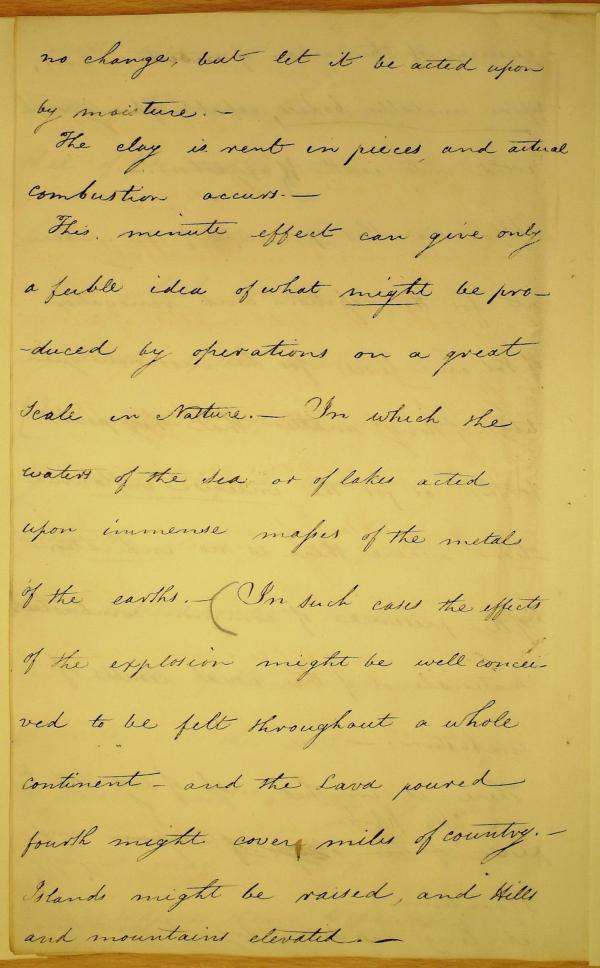 no change, but let it be acted upon
by moisture. —
The clay is rent in pieces and actual
combustion occurs. —
This minute effect can give only
a feeble idea of what might be pro-
-duced by operations on a great
scale in Nature. — In which the
waters of the sea or of lakes acted
upon immense masses of the metals
of the earths. — ( In such cases the effects
of the explosion might be well concei-
ved to be felt throughout a whole
continent — and the Lava poured
fourth might cover miles of country. —
Islands might be raised, and Hills
and mountains elevated. —